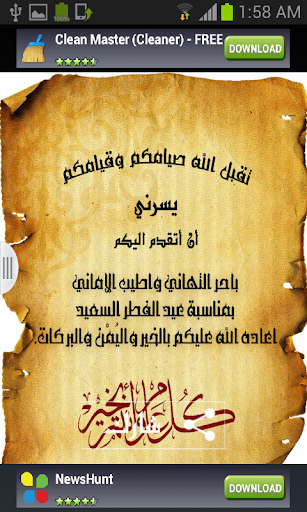 1:58 AM
Clean Master (Cleaner) - FREE
DOWNLOAD
تقبل الله صيامكم وقيامكم
يسرني
أن أتقدم اليكم
باحر التهاني واطيب الاماني
بمناسبة عيد الفطر السعيد
اعاده الله عليكم بالخير واليُمْن والبركات.
كل عام وأنتم بخير
NewsHunt
DOWNLOAD